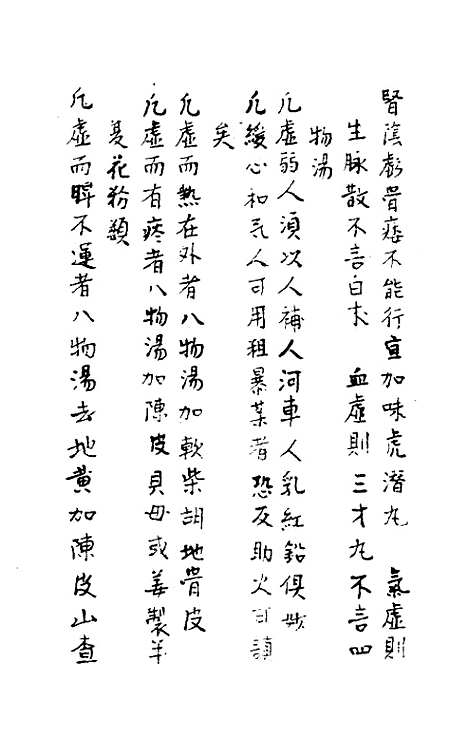 腎陰虧骨痿不能行宜加味虎潛丸　氣虛則
生脉散不言白朮　血虛則三才丸不言四
物湯
凢虛弱人須以人補人河車人乳紅鉛俱妙
凢緩心和氣人可用粗暴某者恐反助火可謹
矣
凢虛而熱在外者八物湯加軟柴胡地骨皮
凢虛而有痰者八物湯加陳皮貝母或姜製半
夏花粉類
凢虛而脾不運者八物湯去地黄加陳皮山查